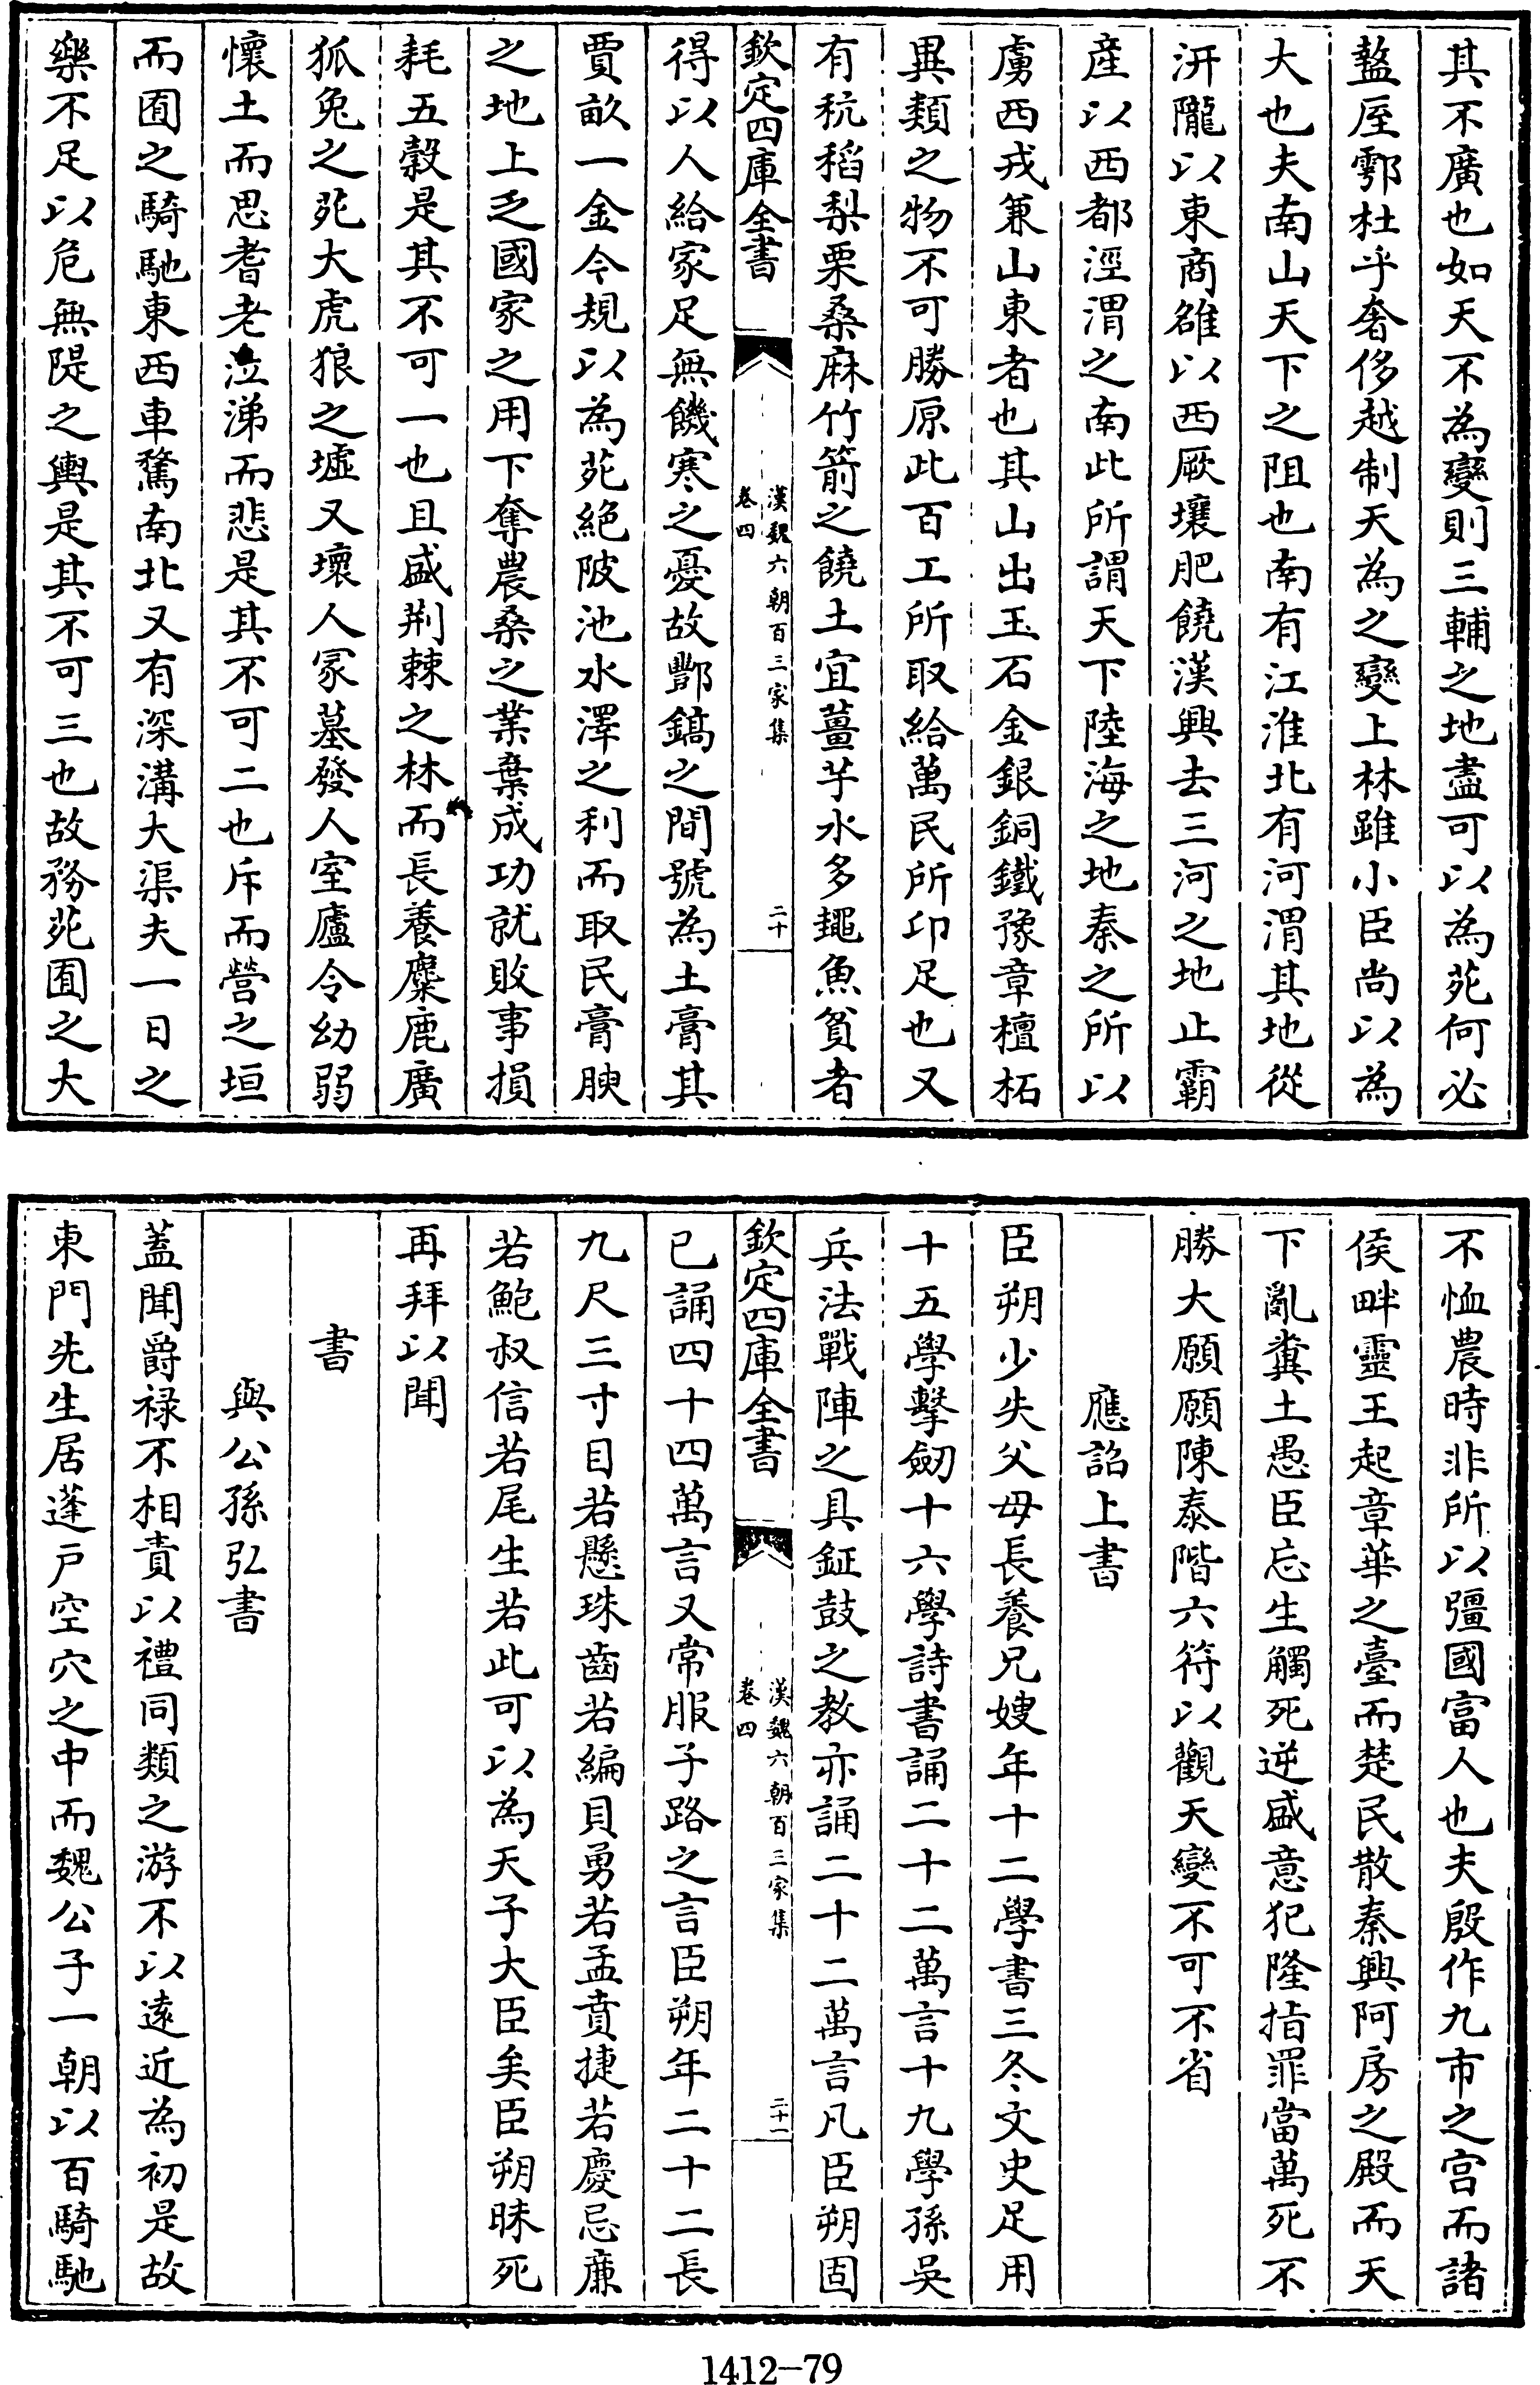 其不廣也如天不為變則三輔之地盡可以為苑何必
盩厔鄠杜乎奢侈越制天為之變上林雖小臣尚以為
大也夫南山天下之阻也南有江淮北有河渭其地從
汧隴以東商雒以西厥壤肥饒漢興去三河之地止霸
產以西都涇渭之南此所謂天下陸海之地秦之所以
虜西戎兼山東者也其山出玉石金銀銅鐵豫章檀柘
異類之物不可勝原此百工所取給萬民所卬足也又
有秔稻梨栗桑麻竹箭之饒土宜薑芋水多鼃魚貧者
欽定四庫全書
漢魏六朝百三家集
卷四
二十
得以人給家足無饑寒之憂故酆鎬之間號為土膏其
賈畝一金今規以為苑絕陂池水澤之利而取民膏腴
之地上乏國家之用下奪農桑之業棄成功就敗事損
耗五穀是其不可一也且盛荆棘之林而長養麋鹿廣
狐兔之苑大虎狼之墟又壞人冢墓發人室廬令幼弱
懷土而思耆老泣涕而悲是其不可二也斥而營之垣
而囿之騎馳東西車騖南北又有深溝大渠夫一日之
樂不足以危無隄之輿是其不可三也故務苑囿之大
不恤農時非所以彊國富人也夫殷作九市之宫而諸
侯畔靈王起章華之臺而楚民散秦興阿房之殿而天
下亂糞土愚臣忘生觸死逆盛意犯隆指罪當萬死不
勝大願願陳泰階六符以觀天變不可不省
應詔上書
臣朔少失父母長養兄嫂年十二學書三冬文史足用
十五學擊劒十六學詩書誦二十二萬言十九學孫吳
兵法戰陣之具鉦鼓之教亦誦二十二萬言凡臣朔固
欽定四庫全書
漢魏六朝百三家集
卷四
二十一
已誦四十四萬言又常服子路之言臣朔年二十二長
九尺三寸目若懸珠齒若編貝勇若孟賁捷若慶忌廉
若鮑叔信若尾生若此可以為天子大臣矣臣朔昧死
再拜以聞
書
與公孫弘書
蓋聞爵禄不相責以禮同類之游不以遠近為初是故
東門先生居蓬戶空穴之中而魏公子一朝以百騎馳
1412-79